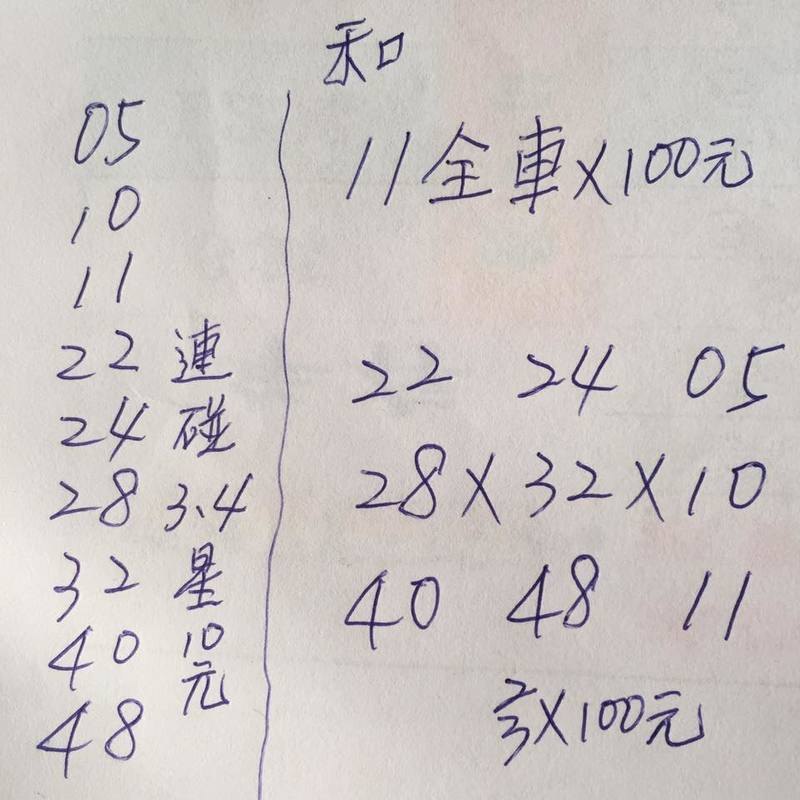 和
05
10
11
22
24
28
32
40
48
連碰3、4星10元
11全車×100元
22 24 05
28×32×10
40 48 11
×100元